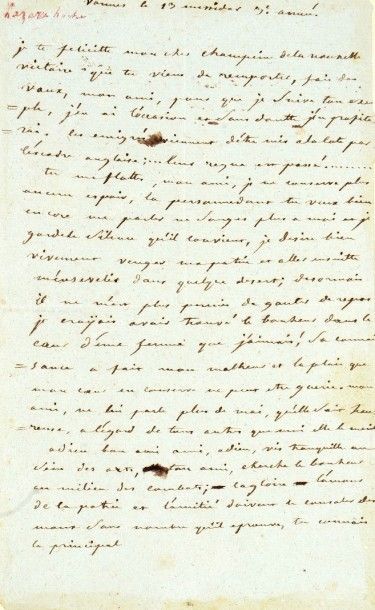 Vannes le 13 messidor 3e année.
Lazare hoche
je te felicitte mon cher champein de la nouvelle
victoire que tu viens de remporter, fais des
vœux, mon ami, pour que je suive ton exem
= ple, j'en ai l'occasion et sans doutte j'en profite
= rais. les emigrés viennent d'être mis a la cote par
l'escadre anglaise; leur regne est passé..........
tu me flattes, mon ami, je ne conserve plus
aucun espoir, la personne dont tu veux bien
encore me parler ne songe plus a moi et je
garde le silence qu'il convient, je desire bien
vivement venger ma patrie et aller ensuitte
m'ensevelir dans quelque desert; desormais
il ne m'est plus permis de gouter de repos
je croyais avoir trouvé le bonheur dans le
cœur d'une femme que j'aimais, sa connai
= sance a fait mon malheur et la plaie que
mon cœur en conserve ne peut etre guerie. mon
ami, ne lui parle plus de moi, qu'elle soit heu
= reuse, a l'égard de tout autre que moi elle le
adieu bon ami, adieu, vis tranquille au
sein des arts, ton ami, cherche le bonheur
au milieu des combats; la gloire l'amour
de la patrie et l'amitié doivent le consoler des
maux sans nombre qu'il eprouve, tu connais
le principal